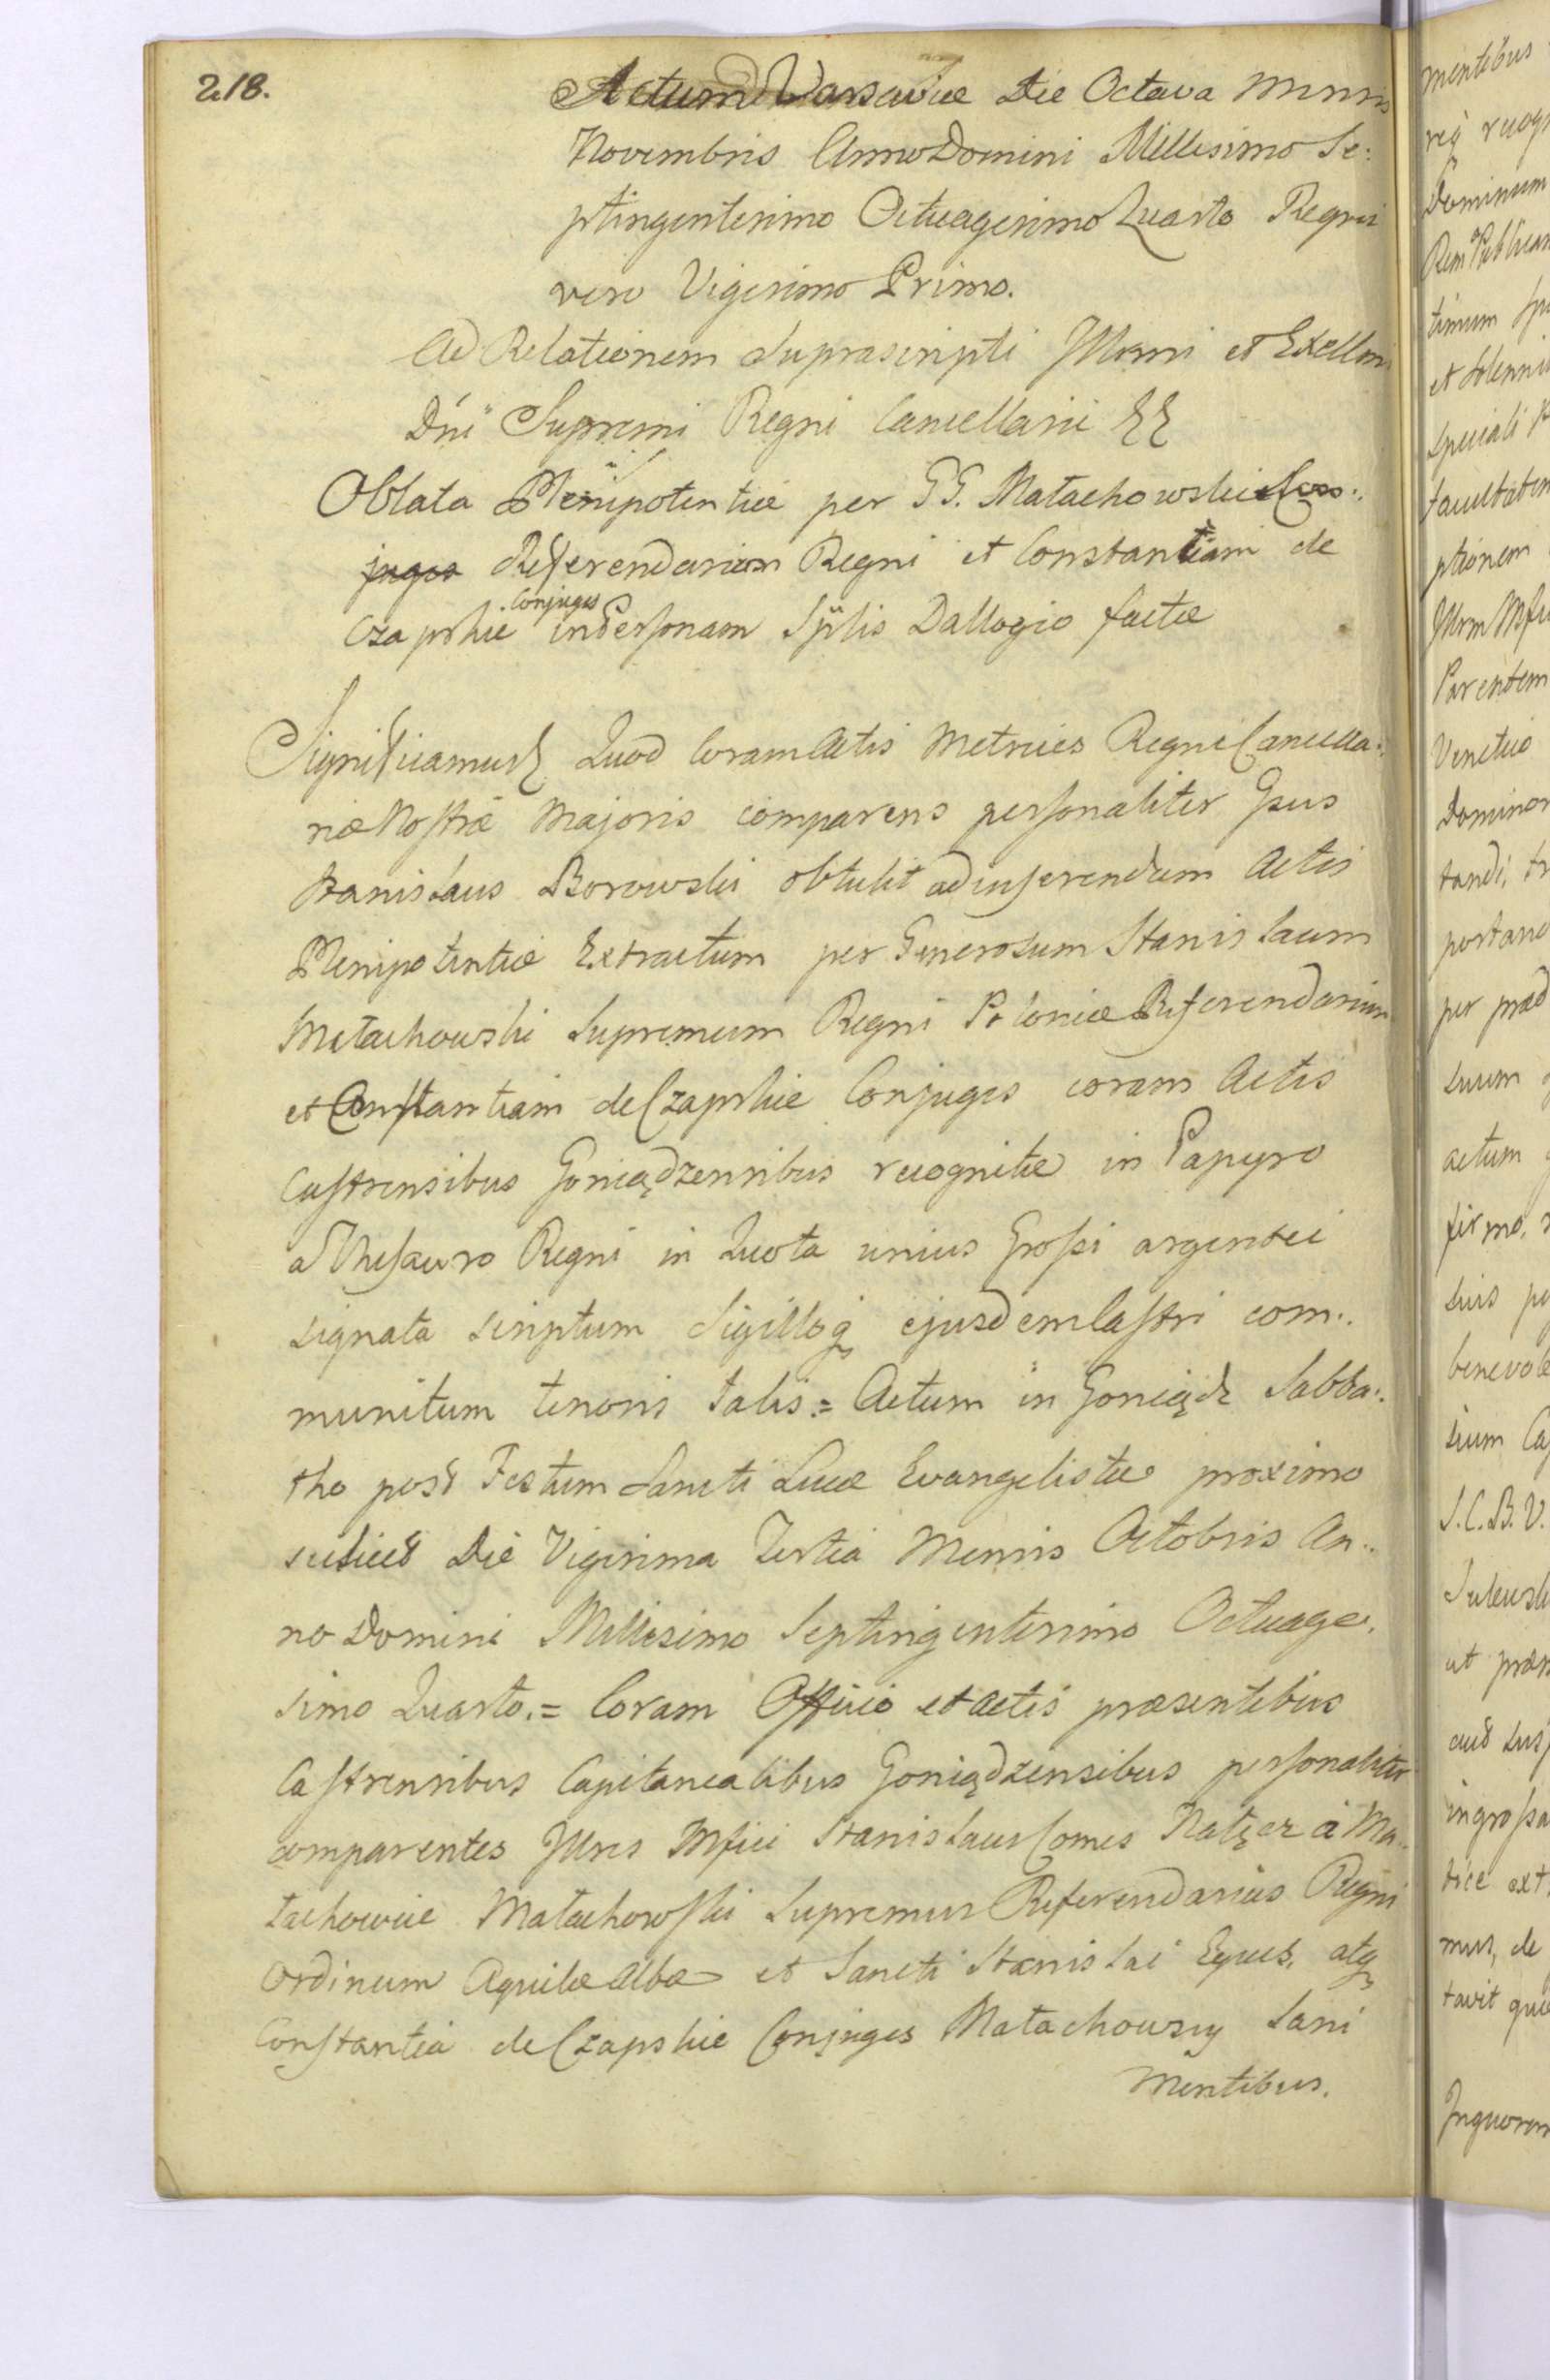 218.
Actum Varsaviæ Die Octava Mensis
Novembris Anno Domini Millesimo Se:
ptingentesimo Octuagesimo Quarto Regni
vero Vigesimo Primo.
Ad Relationem suprascripti Illmi et Exellmi
Dni Supremi Regni Cancellarii
Oblata Plenipotentiæ per GG. Małachowski Con:
juges Referendarium Regni et Constantiam de
Czapskie Conjuges in Personam Spectabilis Dallogio factæ
Significamus Quod Coram Actis Metrices Regni Cancella:
riæ Nostræ Majoris comparens personaliter Gsus
Stanislaus Borowski obtulit ad inserendum Actis
Plenipotentiæ Extractum per Generosum Stanislaum
Małachowski Supremum Regni Poloniæ Referendarium
et Constantiam de Czapskie Conjuges coram Actis
Castrensibus Goniądzensibus recognitæ in Papyro
a Thesauro Regni in Quota unius Grossi argentei
signata scriptum Sigilloq ejusdem Castri com:
munitum tenoris talis.= Actum in Goniądz Sabba:
tho post Festum Sancti Lucæ Evangelistæ proximo
scilicet Die Vigesima Tertia Mensis Octobris An:
no Domini Millesimo Septingentesimo Octuage.
simo Quarto.= Coram Officio et Actis præsentibus
Castrensibus Capitanealibus Goniądzensibus personaliter
comparentes Illres Mfici Stanislaus Comes Nałęcz à Ma:
łachowice Małachowski Supremus Referendarius Regni
Ordinum Aquilæ Albæ et Sancti Stanislai Eques, atq
Constantia de Czapskie Conjuges Małachowscy Sani
Mentibus.
mentibus
Dominum
et solenni
speciali
facultatem
ptionem
Parentem
Venetiis
Dominor
tandi,
per præd
suum
actum
firmo,
suis
benevole
sium
S.C.B.V.
ut
ingrossa
mus, de
tavit